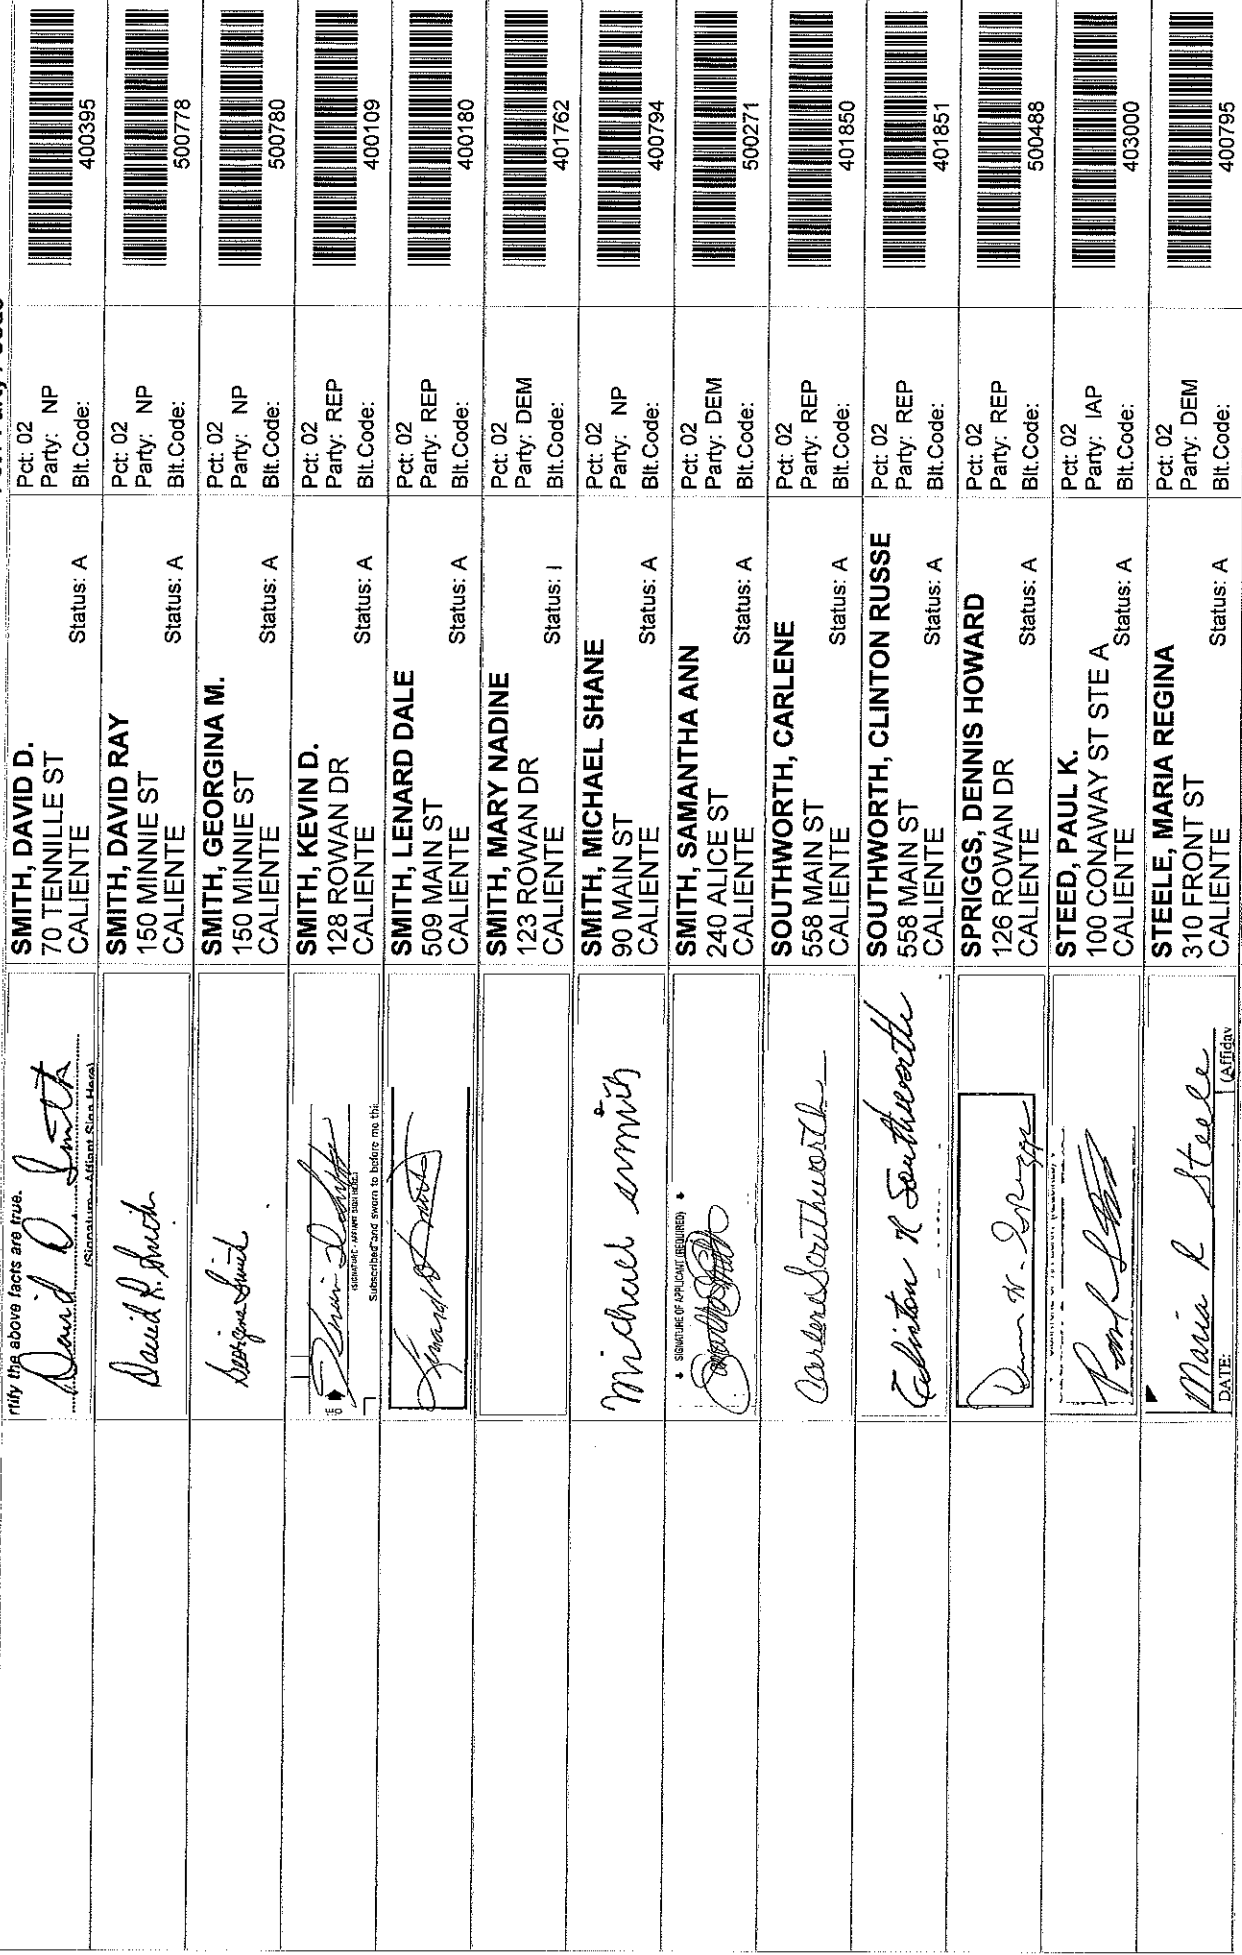 Code
rtify the above facts are true.
David D Smith
(Signature - Affiant Sign Here)
SMITH, DAVID D.
70 TENNILLE ST
CALIENTE
Status: A
Pct: 02
Party: NP
Blt.Code:
400395
David R. Smith
SMITH, DAVID RAY
150 MINNIE ST
CALIENTE
Status: A
Pct: 02
Party: NP
Blt.Code:
500778
Georgina Smith
SMITH, GEORGINA M.
150 MINNIE ST
CALIENTE
Status: A
Pct: 02
Party: NP
Blt.Code:
500780
Kevin D Smith
(SIGNATURE - AFFIANT SIGN HERE)
Subscribed and sworn to before me this
SMITH, KEVIN D.
128 ROWAN DR
CALIENTE
Status: A
Pct: 02
Party: REP
Blt.Code:
400109
Lenard D Smith
SMITH, LENARD DALE
509 MAIN ST
CALIENTE
Status: A
Pct: 02
Party: REP
Blt.Code:
400180
SMITH, MARY NADINE
123 ROWAN DR
CALIENTE
Status: I
Pct: 02
Party: DEM
Blt.Code:
401762
Michael Smith
SMITH, MICHAEL SHANE
90 MAIN ST
CALIENTE
Status: A
Pct: 02
Party: NP
Blt.Code:
400794
SIGNATURE OF APPLICANT (REQUIRED)
SMITH, SAMANTHA ANN
240 ALICE ST
CALIENTE
Status: A
Pct: 02
Party: DEM
Blt.Code:
500271
Carlene Southworth
SOUTHWORTH, CARLENE
558 MAIN ST
CALIENTE
Status: A
Pct: 02
Party: REP
Blt.Code:
401850
Clinton R Southworth
SOUTHWORTH, CLINTON RUSSE
558 MAIN ST
CALIENTE
Status: A
Pct: 02
Party: REP
Blt.Code:
401851
SPRIGGS, DENNIS HOWARD
126 ROWAN DR
CALIENTE
Status: A
Pct: 02
Party: REP
Blt.Code:
500488
STEED, PAUL K.
100 CONAWAY ST STE A
CALIENTE
Status: A
Pct: 02
Party: IAP
Blt.Code:
403000
Maria R Steele
DATE:
(Affidav
STEELE, MARIA REGINA
310 FRONT ST
CALIENTE
Status: A
Pct: 02
Party: DEM
Blt.Code:
400795